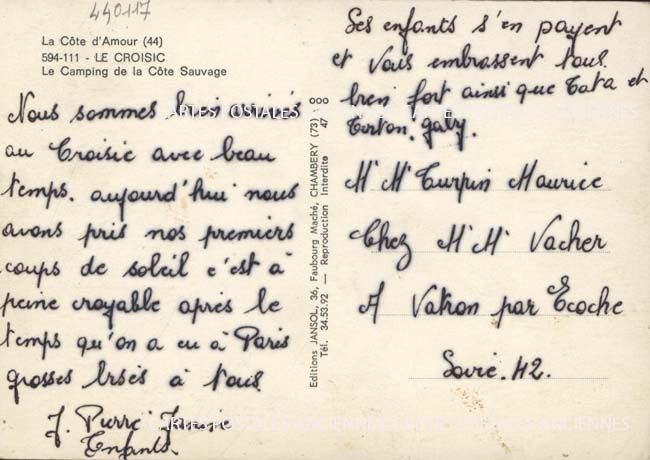 440117
La Côte d'Amour (44)
594-111 - LE CROISIC
Le Camping de la Côte Sauvage
Nous sommes bien
au Croisic avec beau
temps. aujourd'hui nous
avons pris nos premiers
coups de soleil c'est à
peine croyable après le
temps qu'on a eu à Paris
grosses bises à tous.
J. Pierre
Enfants.
Editions JANSOL, 36, Faubourg Maché, CHAMBERY (73)
Tél. 34.53.92 — Reproduction Interdite 47
Les enfants s'en payent
et vous embrassent tous.
bien fort ainsi que Tata et
Tonton. Gaby.
Mr Me Turpin Maurice
Chez Mr Me Vacher
A Vatron par Ecoche
Loire. 42.
CARTES POSTALES ANCIENNES